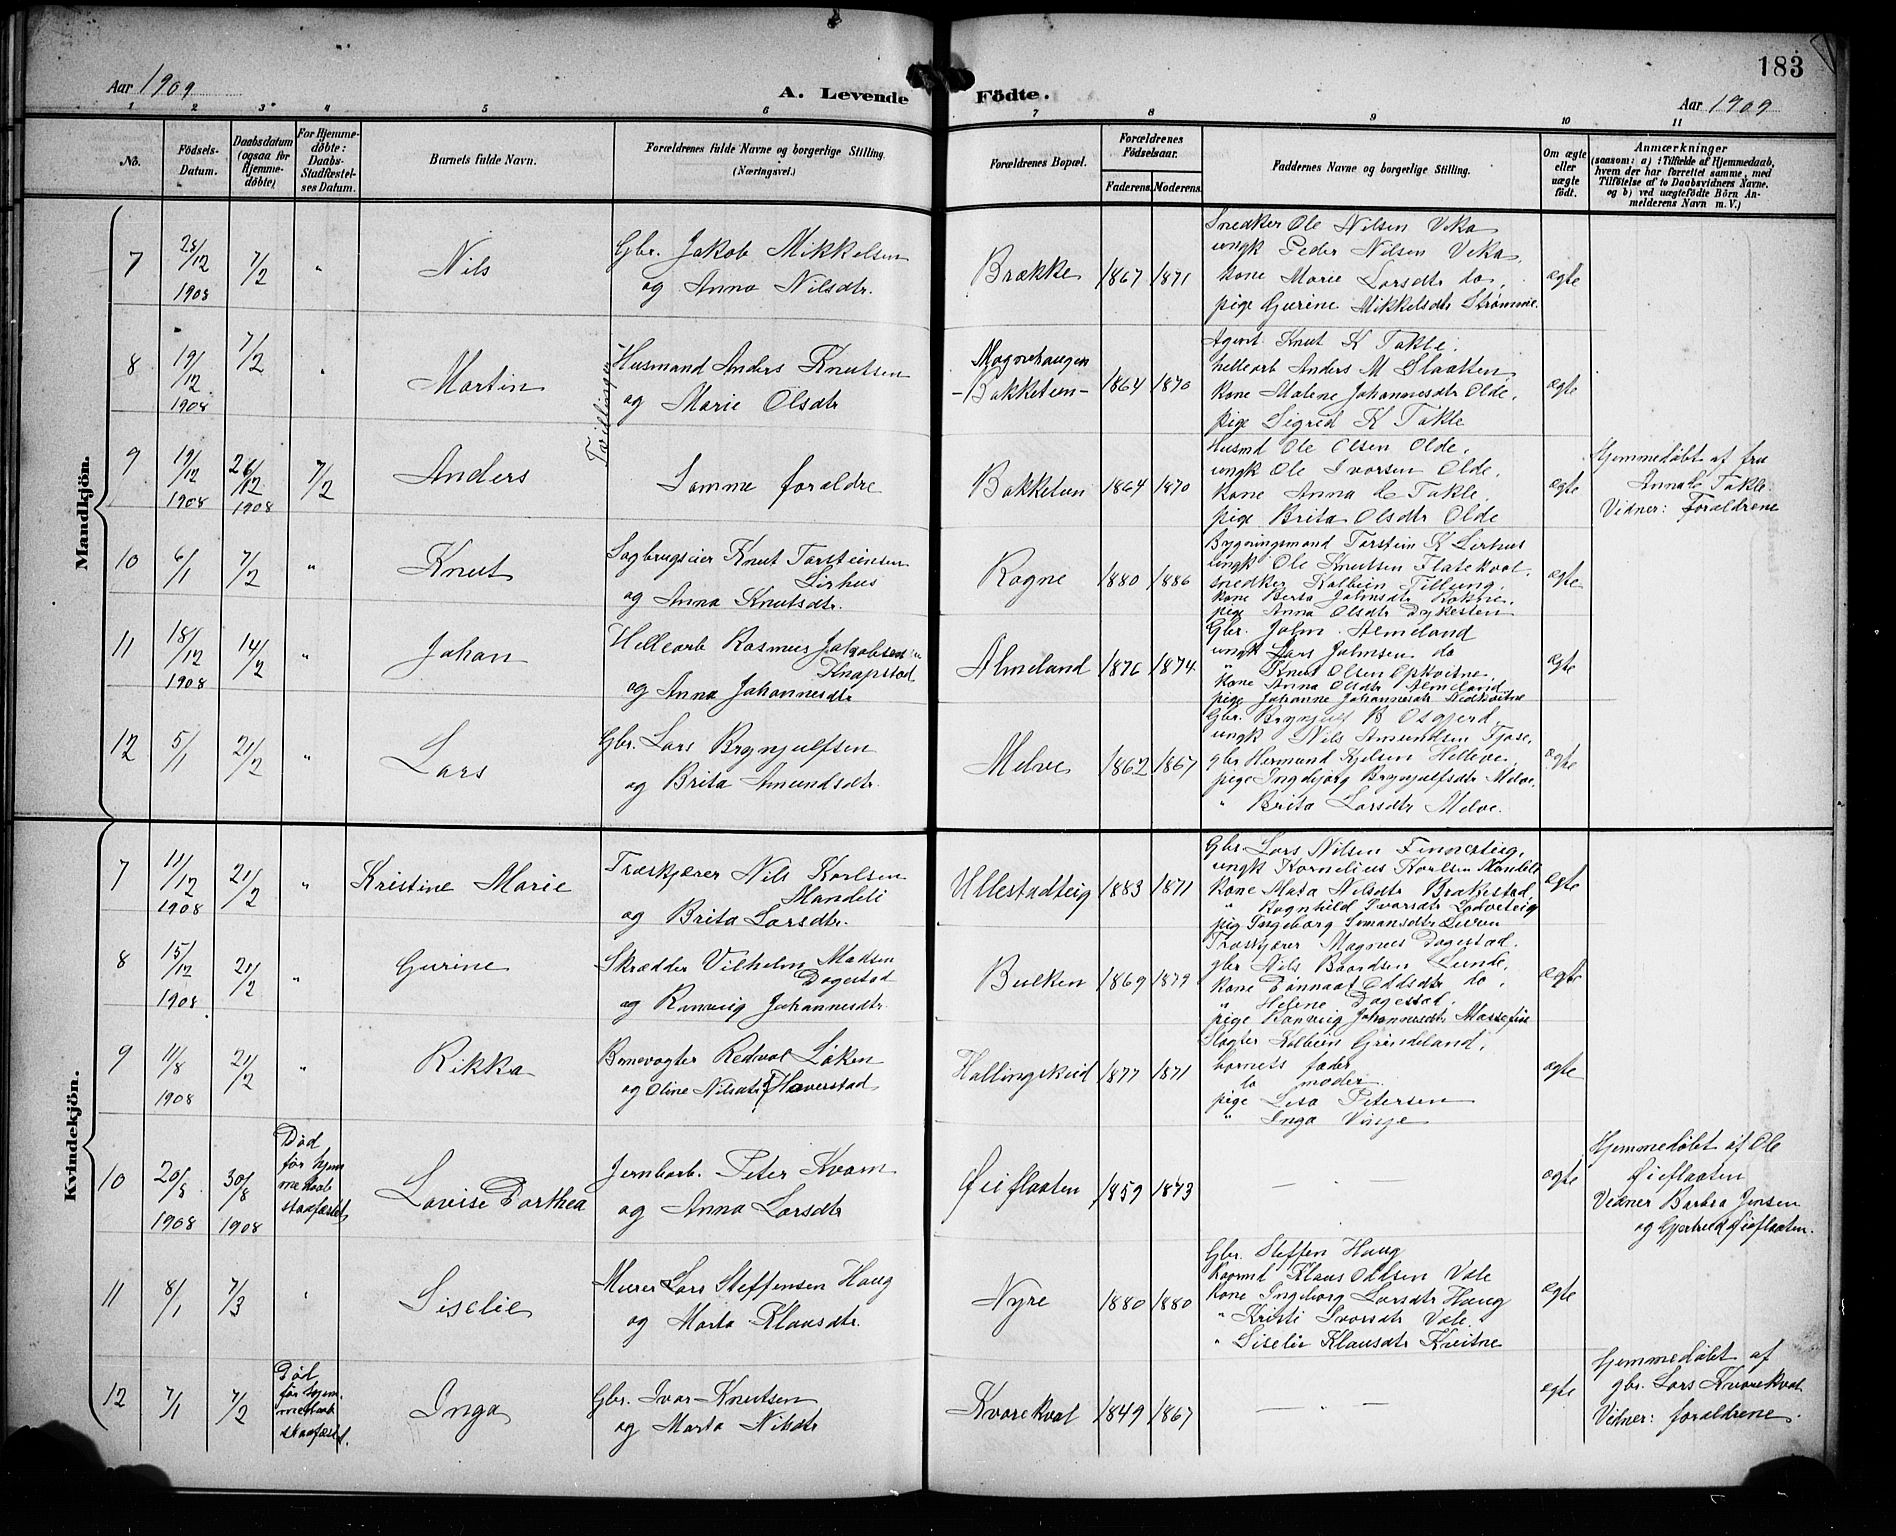 183
Aar 1909
A. Levende Födte.
Aar 1909
1 2 3 4 5 6 7 8 9 10 11
No.
Födsels-Datum.
Daabsdatum (ogsaa for Hjemme-döbte)
For Hjemme-döbte: Daabs-Stadfæstel-ses Datum.
Barnets fulde Navn.
Forældrenes fulde Navne og borgerlige Stilling. (Næringsvei.)
Forældrenes Bopæl.
Forældrenes Födselsaar.
Faderens. Moderens.
Faddernes Navne og borgerlige Stilling.
Om ægte eller uægte födt.
Anmærkninger
(saasom: a) i Tilfælde af Hjemmedaab, hvem der har forrettet samme, med Tilföielse af to Daabsvidners Navne, og b) ved uægtefödte Börn An-melderens Navn m. V.)
Mandkjön.
7 28/12 1908 7/2 " Nils
Gbr. Jakob Mikkelsen
og Anna Nilsdtr.
Brække 1867 1871
Snedker Ole Nilsen Veka
ungk Peder Nilsen Veka.
kone Marie Larsdtr do,
pige Gurine Mikkelsdtr Strømme.
ægte
8 19/12 1908 7/2 " Martin
Tvillinger
Husmand Anders Knutsen
og Marie Olsdtr
Magnehaugen
-Bakketun- 1864 1870
Agent Knut K Takle.
hellearb Anders M Slaatten,
kone Malene Johannesdtr Olde,
pige Sigrid K Takle
ægte
9 19/12 1908 26/12 1908 7/2 Anders
Samme forældre
Bakketun 1864 1870
Husmd Ole Olsen Olde.
ungk Ole Ivarsen Olde.
kone Anna C Takle.
pige Brita Olsdtr Olde
ægte
Hjemmedøbt af fru
Anna C Takle.
Vidner: Forældrene
10 6/1 7/2 " Knut
Sagbrugseier Knut Torsteinsen
Lirhus
og Anna Knutsdtr.
Rogne 1880 1886
Bygningsmand Torstein K Lirhus
ungk Ole Knutsen Flatekval.
snedker Kolbein Tillung,
kone Berta Johnsdtr Rokne,
pige Anna Olsdtr Dykesten
ægte
11 18/12 1908 14/2 " Johan
Hellearb Rasmus Jakobsen
Knapstad
og Anna Johannesdtr
Almeland 1876 1874
Gbr. John Almeland
ungk Lars Johnsen do
" Knut Olsen Opkvitne.
kone Anna Olsdtr Almeland
pige Johanne Johannesdtr Nedkvitne
ægte
12 5/1 21/2 " Lars
Gbr. Lars Brynjulfsen
og Brita Amundsdtr.
Melve 1862 1867
Gbr. Brynjulf B Osgjerd,
ungk Nils Amundsen Fjose,
gbr Hermund Kjelsen Helleve,
pige Ingebjørg Brynjulfsdtr Melve.
" Brita Larsdtr Melve.
ægte
Kvindekjön.
7 11/12 1908 21/2 " Kristine Marie
Træskjærer Nils Karlsen
Mandeli
og Brita Larsdtr.
Ullestadteig 1883 1871
Gbr. Lars Nilsen Finnesteig,
ungk Kornelius Karlsen Mandeli
kone Mata Nilsdtr Brækestad,
" Ragnhild Ivarsdtr Lødveteig
pig Ingeborg Simonsdtr Liven
ægte
8 15/12 1908 21/2 " Gurine
Skrædder Vilhelm Madsen
Dagestad
og Ranveig Johannesdtr.
Bulken 1869 1879
Træskjærer Magnus Dagestad.
gbr Nils Baardsen Lunde,
kone Dønnaat Oddsdtr do,
" Helene Dagestad.
pige Ranveig Johannesdtr Massefjøse
ægte
9 11/8 1908 21/2 " Rikka
Banevogter Redval Løken
og Oline Nilsdtr f. Haverstad
Hallingskeid 1877 1871
Slagter Kolbein Grindeland,
barnets fader
do moder.
pige Lisa Petersen
" Inga Vinje
ægte
10 20/8 1908 30/8 1908
Død før hjemmedaab stadfæstet
Lovise Dorthea
Jernbarb. Peter Kvam
og Anna Larsdtr
Øieflaaten 1859 1873
— " —
ægte
Hjemmedøbt af Ole
Øieflaaten
Vidner Barbra Jensen
og Gjertrud Øieflaaten.
11 8/1 7/3 " Siselie
Murer Lars Steffensen Haug
og Marta Klausdtr.
Nyre 1880 1880
Gbr. Steffen Haug
Kaarmd Klaus Oddsen Vale
kone Ingeborg Larsdtr Haug
" Kristi Ivarsdtr Vale.
" Siselie Klausdtr Kvitne
ægte
12 7/1 7/2
Død før hjemmedaab stadfæstet.
Inga
Gbr. Ivar Knutsen
og Marta Nilsdtr
Kvarekval 1849 1867
— " —
ægte
Hjemmedøbt af
gbr. Lars Kvarekval
Vidner: forældrene.